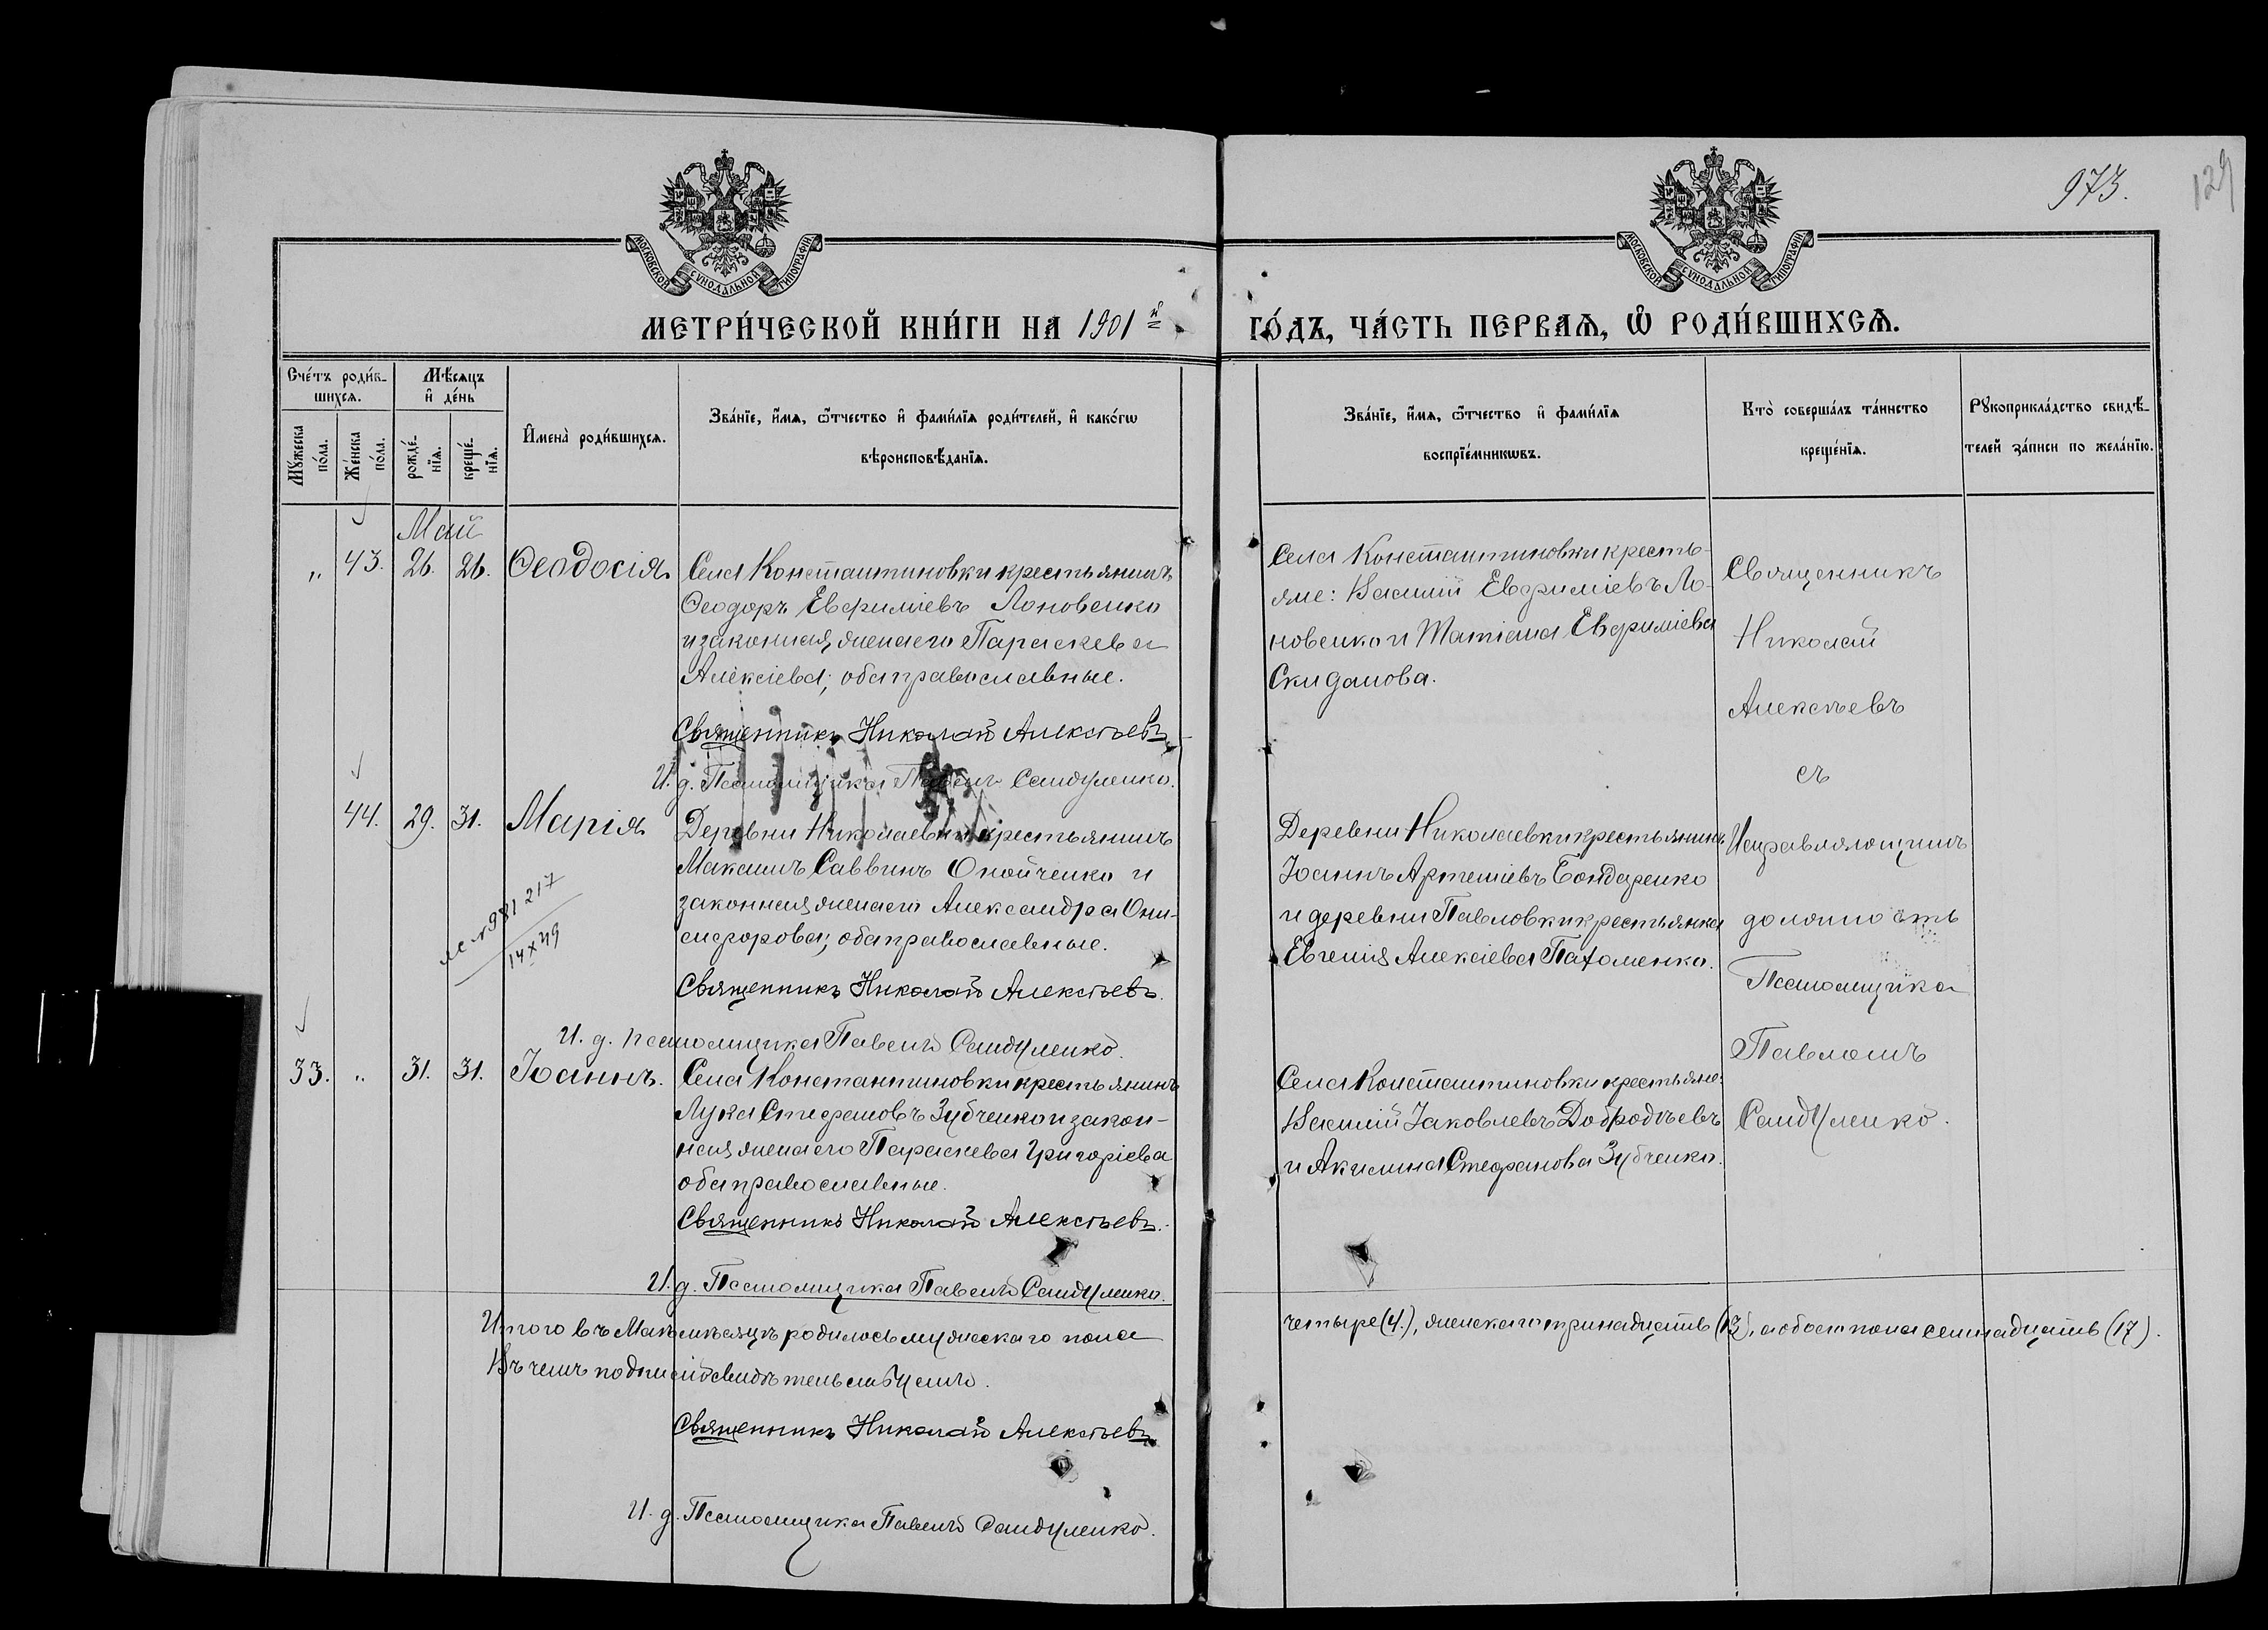 973.
129
МОСКОВСКОЙ СУНОДАЛЬНОЙ ТИПОГРАФІИ
МОСКОВСКОЙ СУНОДАЛЬНОЙ ТИПОГРАФІИ
МЕТРИ́ЧЕСКОЙ КНИ́ГИ НА 1901 й ГО́ДЪ, ЧА́СТЬ ПЕРВАѦ, Ѡ҆ РОДИ́ВШИХСѦ.
Сче́тъ роди́в-
шихсѧ.
Мꙋ́жеска
по́ла.
Же́нска
по́ла.
Мѣ́сѧцъ
и҆ де́нь
рожде́-
нїѧ.
креще́-
нїѧ.
И҆мена̀ роди́вшихсѧ.
Зва́нїе, и҆́мѧ, ѻ҆́тчество и҆ фами́лїѧ роди́телей, и҆ како́гѡ
вѣроисповѣ́данїѧ.
Зва́нїе, и҆́мѧ, ѻ҆́тчество и҆ фами́лїѧ
воспрїе́мникѡвъ.
Кто̀ соверша́лъ та́инство
креще́нїѧ.
Рꙋкоприкла́дство свидѣ́-
телей за́писи по жела́нїю.
Май
„ 43. 26. 26. Ѳеодосія
Села Константиновки крестьянинъ
Ѳеодоръ Евфиміевъ Лоновенко
и законная жена его Параскева
Алексіева; оба православные.
Священникъ Николай Алексѣевъ
И. д. Псаломщика Павелъ Сандуленко.
Села Константиновки кресть-
яне: Василій Евфиміевъ Ло-
новенко и Татіана Евфиміева
Скиданова.
Священникъ
Николай
Алексѣевъ
съ
Исправляющимъ
должность
Псаломщика
Павломъ
Сандуленко.
44. 29. 31. Марія
981217
14 X 49
Деревни Николаевки крестьянинъ
Максимъ Саввинъ Онойченко и
законная жена его Александра Они-
сифорова; оба православные.
Священникъ Николай Алексѣевъ.
И. д. псаломщика Павелъ Сандуленко.
Деревни Николаевки крестьянинъ
Іоаннъ Артеміевъ Бондаренко
и деревни Павловки крестьянка
Евгенія Алексіева Патоменко.
33. „ 31. 31. Іоаннъ.
Села Константиновки крестьянинъ
Лука Стефановъ Зубченко и закон-
ная жена его Параскева Григоріева
оба православные.
Священникъ Николай Алексѣевъ.
И. д. Псаломщика Павелъ Сандуленко.
Села Константиновки крестьяне:
Василій Іаковлевъ Добродѣевъ
и Акилина Стефанова Зубченко.
Итого въ Маѣ мѣсяцѣ родилось мужескаго пола четыре (4.), женскаго тринадцать (13), а обоего пола семнадцать (17).
Въ чемъ подписью свидѣтельствуемъ.
Священникъ Николай Алексѣевъ
И. д. Псаломщика Павелъ Сандуленко.